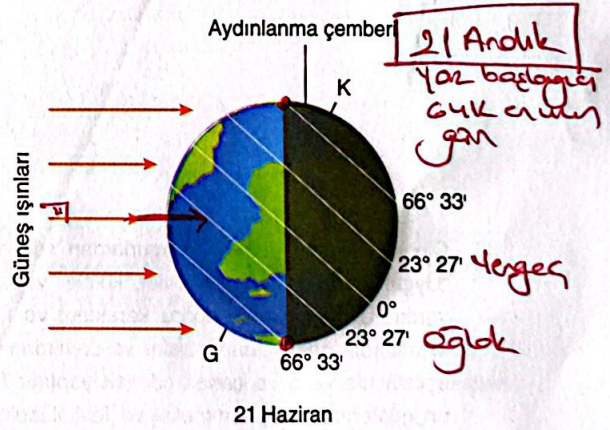 Aydınlanma çemberi
21 Aralık
Yaz başlangıcı
GYK en uzun
gün
K
Güneş ışınları
66° 33'
23° 27' Yengeç
0°
23° 27' Oğlak
G
66° 33'
21 Haziran